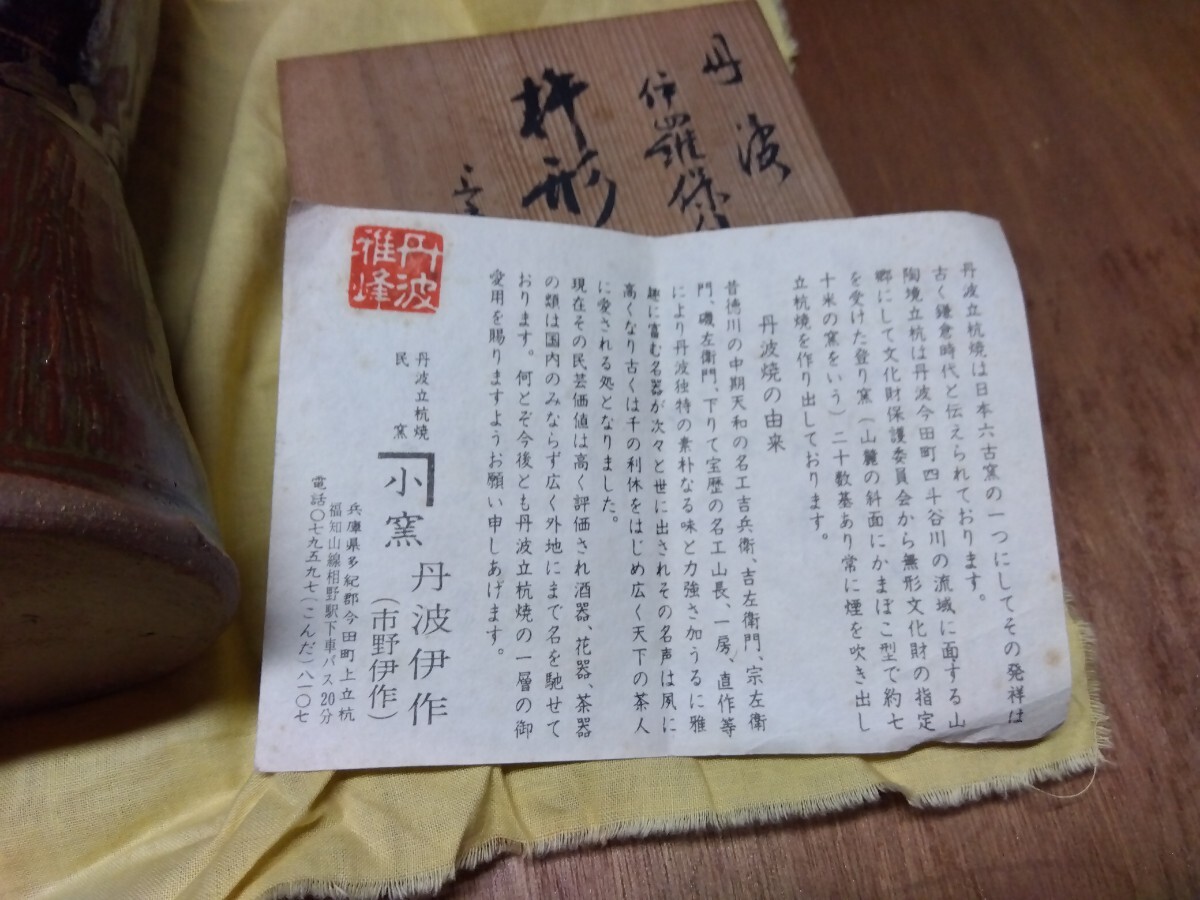 丹波
伊羅保
杵形
丹波立杭焼は日本六古窯の一つにしてその発祥は
古く鎌倉時代と伝えられております。
陶境立杭は丹波今田町四斗谷川の流域に面する山
郷にして文化財保護委員会から無形文化財の指定
を受けた登り窯（山麓の斜面にかまぼこ型で約七
十米の窯をいう）二十数基あり常に煙を吹き出し
立杭焼を作り出しております。
丹波焼の由来
昔徳川の中期天和の名工吉兵衛、吉左衛門、宗左衛
門、磯左衛門、下りて宝歴の名工山長、一房、直作等
により丹波独特の素朴なる味と力強さ加うるに雅
趣に富む名器が次々と世に出されその名声は夙に
高くなり古くは千の利休をはじめ広く天下の茶人
に愛される処となりました。
現在その民芸価値は高く評価され酒器、花器、茶器
の類は国内のみならず広く外地にまで名を馳せて
おります。何とぞ今後とも丹波立杭焼の一層の御
愛用を賜りますようお願い申しあげます。
丹波
雅峰
丹波立杭焼
民窯
小窯
丹波伊作
（市野伊作）
兵庫県多紀郡今田町上立杭
福知山線相野駅下車バス20分
電話〇七九五九七（こんだ）八一〇七